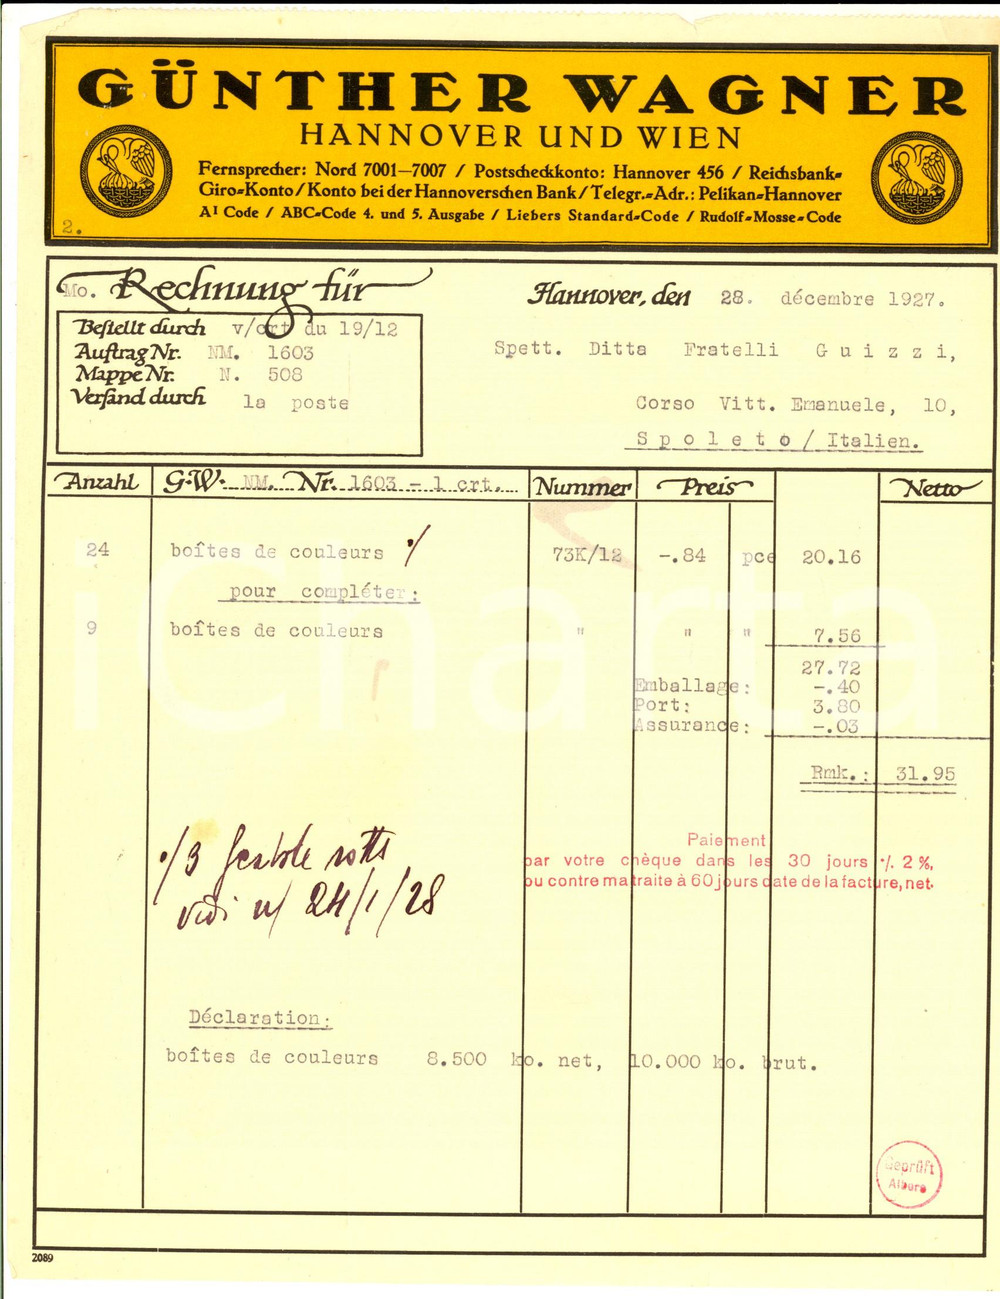 GÜNTHER WAGNER
HANNOVER UND WIEN
Fernsprecher: Nord 7001—7007 / Postscheckkonto: Hannover 456 / Reichsbank-
Giro-Konto / Konto bei der Hannoverschen Bank / Telegr.-Adr.: Pelikan-Hannover
A1 Code / ABC-Code 4. und 5. Ausgabe / Liebers Standard-Code / Rudolf-Mosse-Code
2.
Mo. Rechnung für
Hannover, den 28. décembre 1927.
Bestellt durch v/crt du 19/12
Auftrag Nr. NM. 1603
Mappe Nr. N. 508
Versand durch la poste
Spett. Ditta Fratelli Guizzi,
Corso Vitt. Emanuele, 10,
Spoleto / Italien.
Anzahl G.W. NM. Nr. 1603 - 1 crt. Nummer Preis Netto
24 boîtes de couleurs ./. 73K/12 -.84 pce 20.16
pour compléter:
9 boîtes de couleurs " " " 7.56
27.72
Emballage: -.40
Port: 3.80
Assurance: -.03
Rmk.: 31.95
iCharta
Paiement
par votre chèque dans les 30 jours ./. 2 %,
ou contre ma traite à 60 jours date de la facture, net.
./3 rotte
vidi n/ 24/1/28
Déclaration:
boîtes de couleurs 8.500 ko. net, 10.000 ko. brut.
Geprüft
Albers
2089